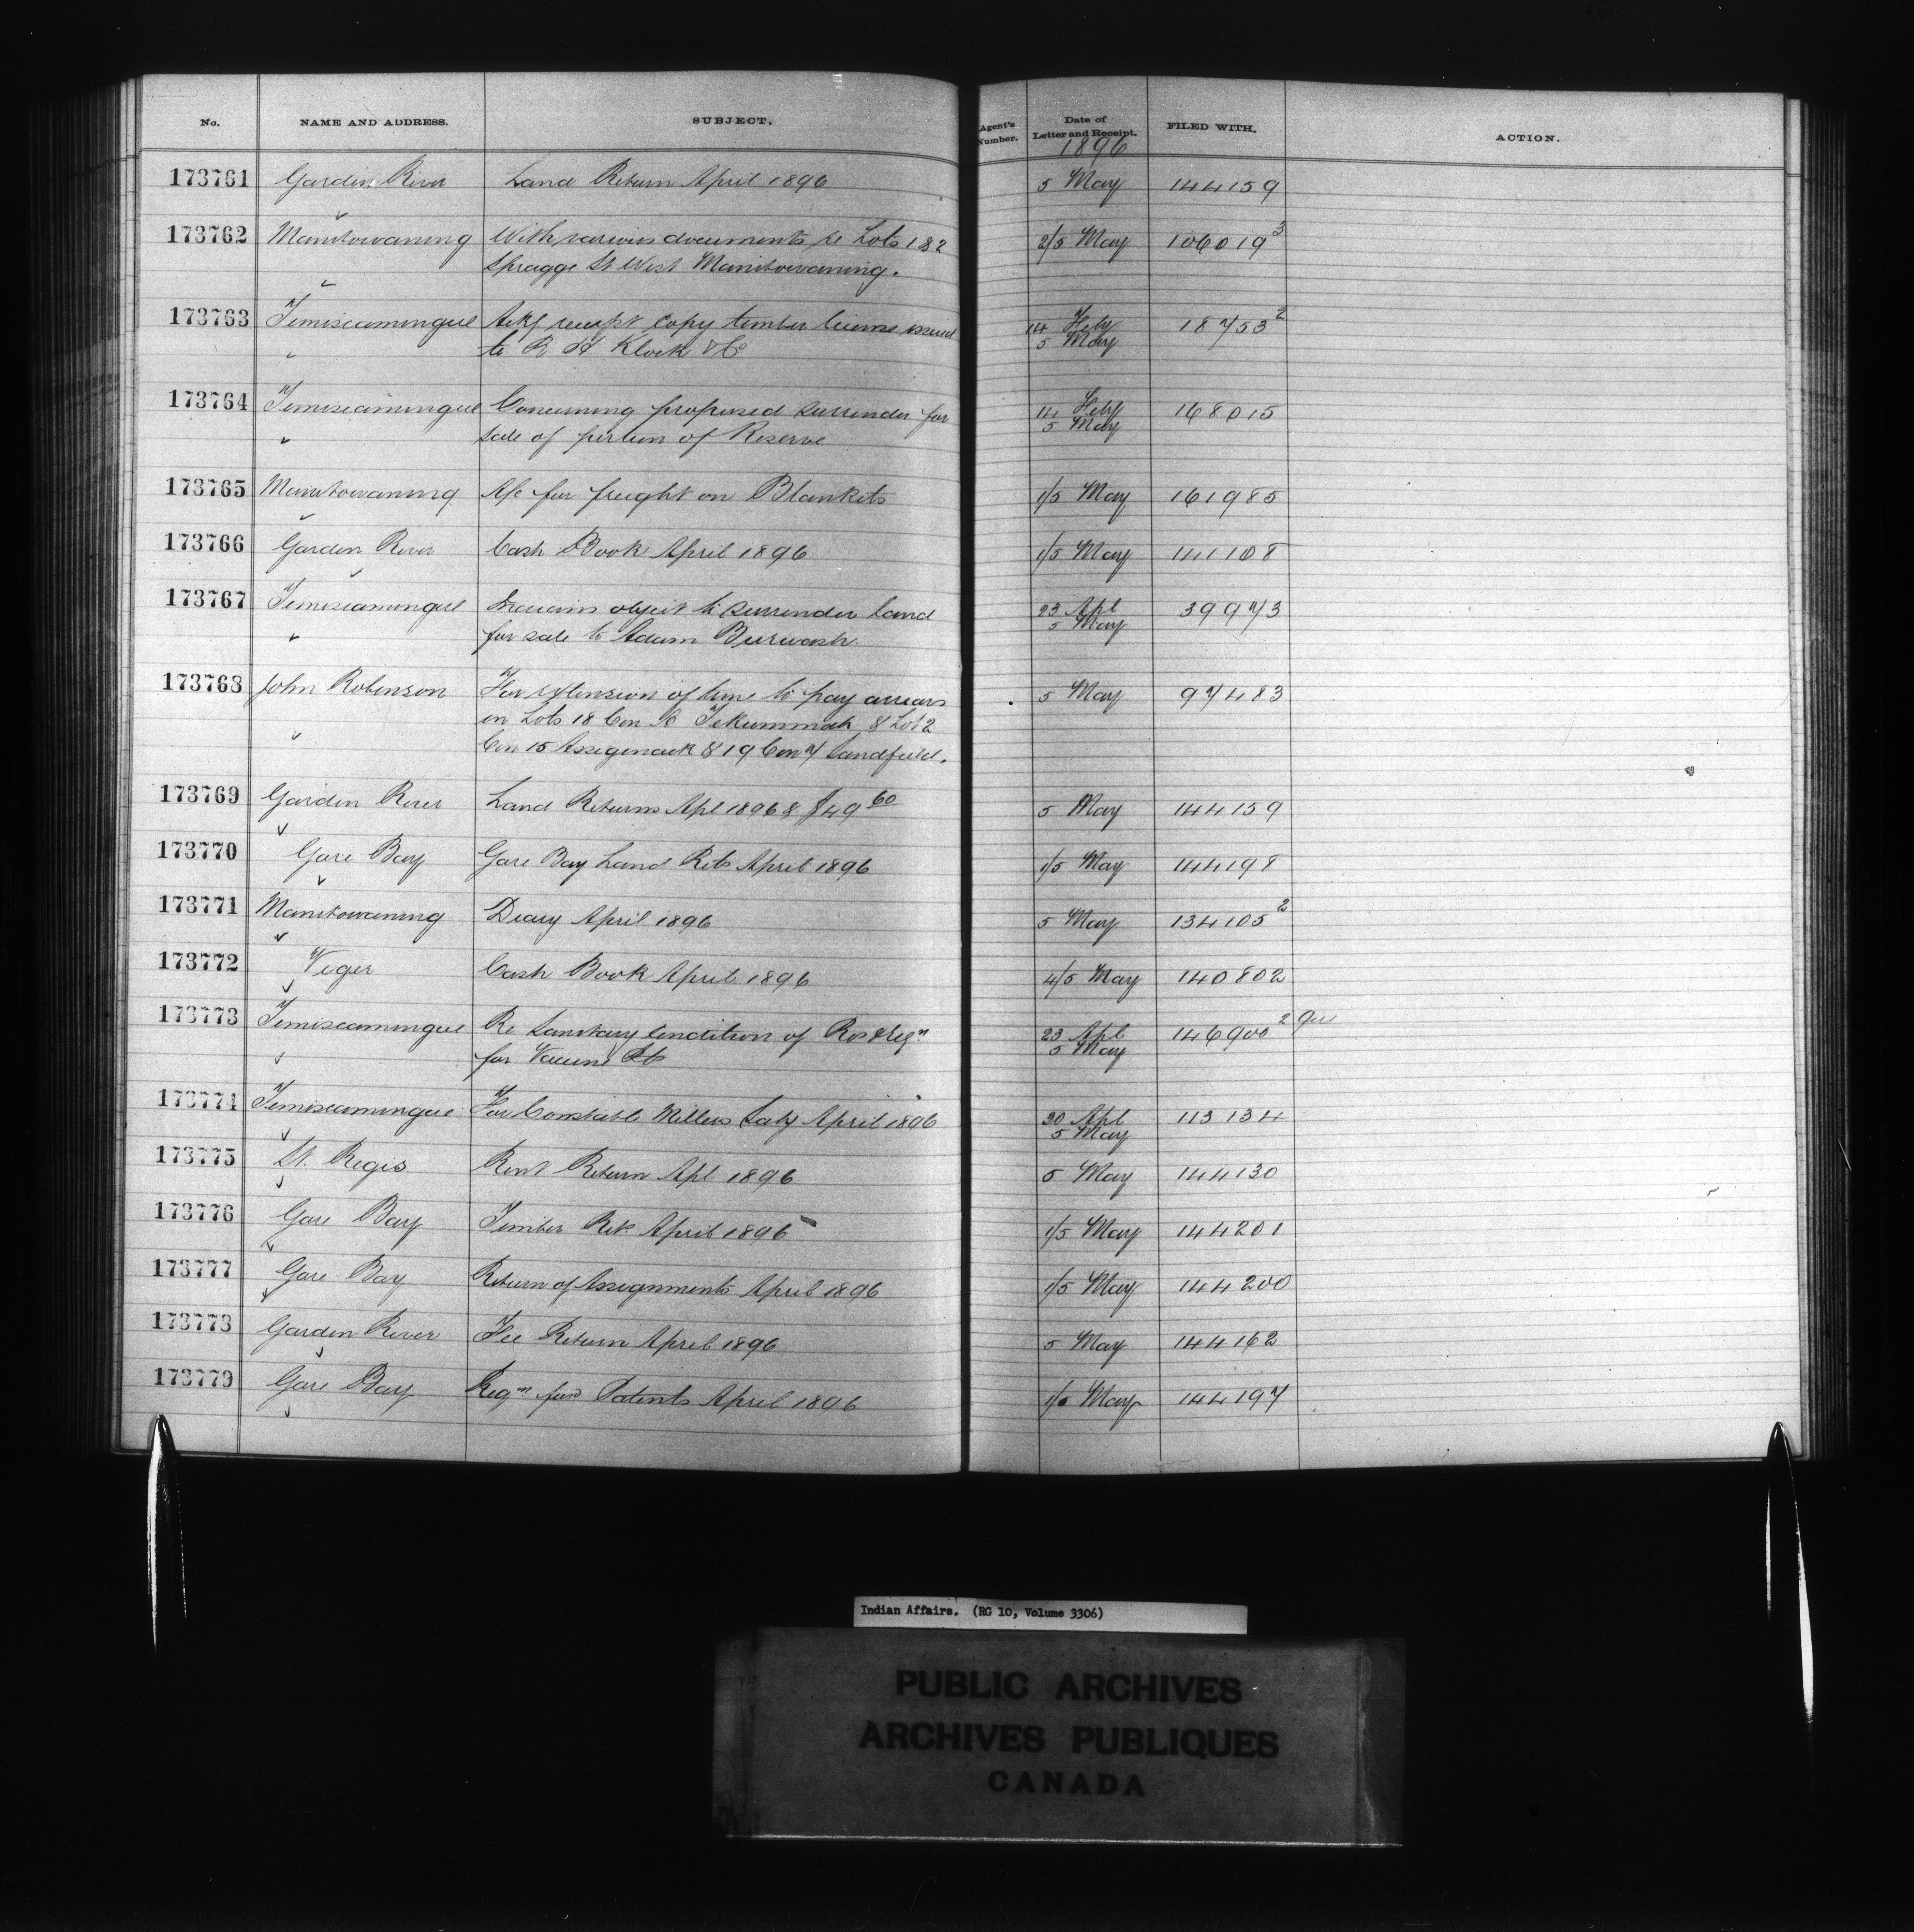 No. NAME AND ADDRESS. SUBJECT. Agent's Number. Date of Letter and Receipt. FILED WITH. ACTION.
1896
173761 Garden River Land Return April 1896 5 May 144159
173762 Manitowaning With various documents re Lots 1 & 2 2/5 May 106019³
Spragge St West Manitowaning.
173763 Temiscamingue Ackg receipt copy timber license issued 14 Feby 18753²
to R H Klock & Co 5 May
173764 Temiscamingue Concerning proposed surrender for 14 Feby 168015
sale of portion of Reserve 5 May
173765 Manitowaning A/c for freight on Blankets 1/5 May 161985
173766 Garden River Cash Book April 1896 1/5 May 141108
173767 Temiscamingue Indians object to surrender land 23 Apl 39973
for sale to Adam Burwash. 5 May
173768 John Robinson For extension of time to pay arrears 5 May 97483
on Lots 18 Con Tekummah & Lot 2
Con 15 Assigenack & 19 Con 7 Sandfield.
173769 Garden River Land Returns Apl 1896 & $49 60 5 May 144159
173770 Gore Bay Gore Bay Land Rets April 1896 1/5 May 144198
173771 Manitowaning Diary April 1896 5 May 134105²
173772 Viger Cash Book April 1896 4/5 May 140802
173773 Temiscamingue Re Sanitary Condition of Res & Reqn 23 Apl 146900²
for Vaccine Pts 5 May
173774 Temiscamingue For Constable Millers Saly April 1896 30 Apl 113134
5 May
173775 St. Regis Rent Return Apl 1896 5 May 144130
173776 Gore Bay Timber Ret. April 1896 1/5 May 144201
173777 Gore Bay Return of Assignments April 1896 1/5 May 144200
173778 Garden River Fee Return April 1896 5 May 144162
173779 Gore Bay Reqn for Patents April 1896 May 144197
Indian Affairs. (RG 10, Volume 3306)
PUBLIC ARCHIVES
ARCHIVES PUBLIQUES
CANADA